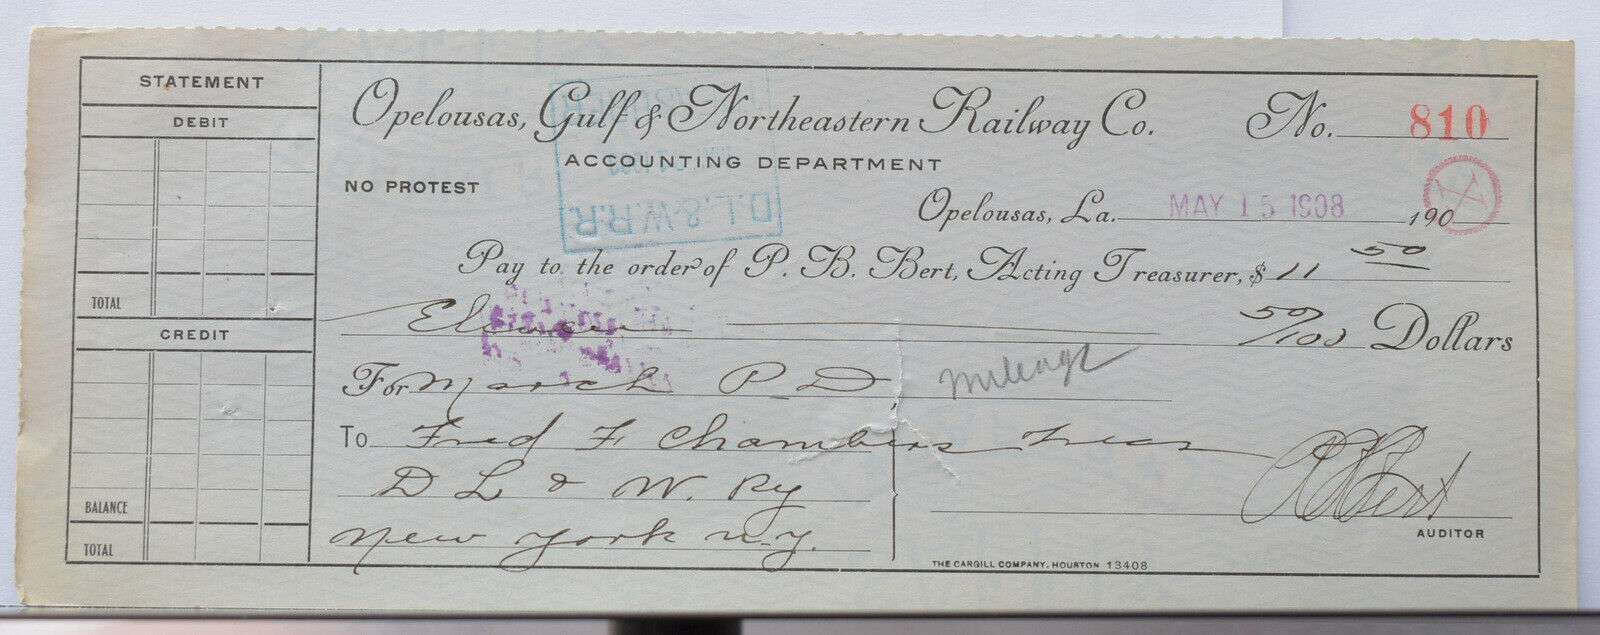 STATEMENT
DEBIT
TOTAL
CREDIT
BALANCE
TOTAL
Opelousas, Gulf & Northeastern Railway Co. No. 810
ACCOUNTING DEPARTMENT
NO PROTEST
D.L.&W.R.R.
Opelousas, La. MAY 15 1908 190
Pay to the order of P. B. Bert, Acting Treasurer, $ 11 50
Eleven 50/100 Dollars
For March P. D. mileage
To Fred F Chambers Treas
D L & W. Ry
New York N.Y.
AUDITOR
THE CARGILL COMPANY, HOUSTON 13408